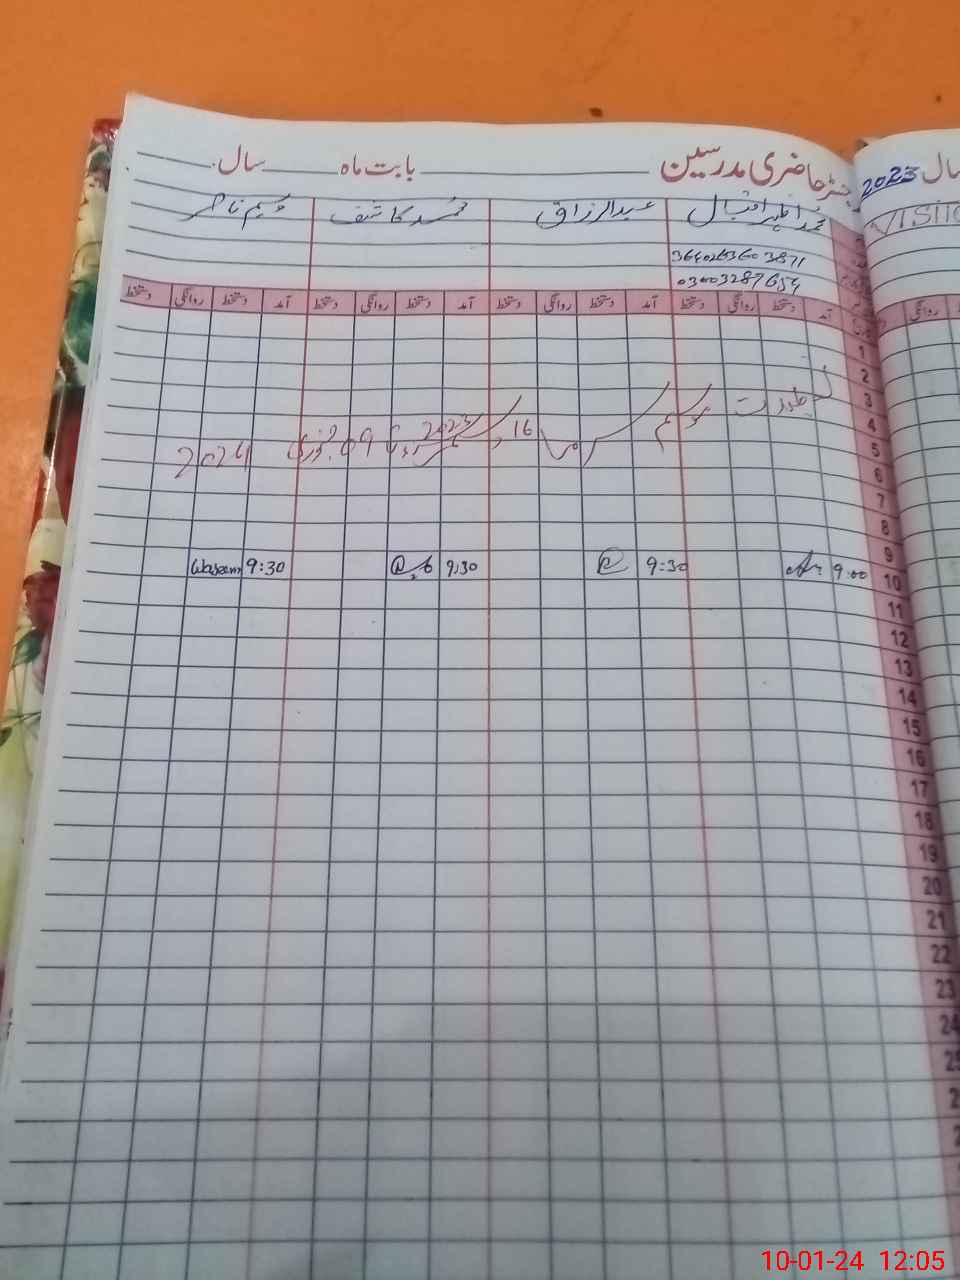 رجسٹر حاضری مدرسین بابت ماہ سال
محمد اظہر اقبال عبدالرزاق محمد کاشف وسیم ناصر
03003287654
آمد دستخط روانگی دستخط آمد دستخط روانگی دستخط آمد دستخط روانگی دستخط آمد دستخط روانگی دستخط
1
2
3
تعطیلات موسم سرما 16 دسمبر 2023 تا 09 جنوری 2024
4
5
6
7
8
9
10 9:00 9:30 9:30 9:30 Waseem
11
12
13
14
15
16
17
18
19
20
21
22
23
24
25
سال 2023
روانگی
10-01-24 12:05